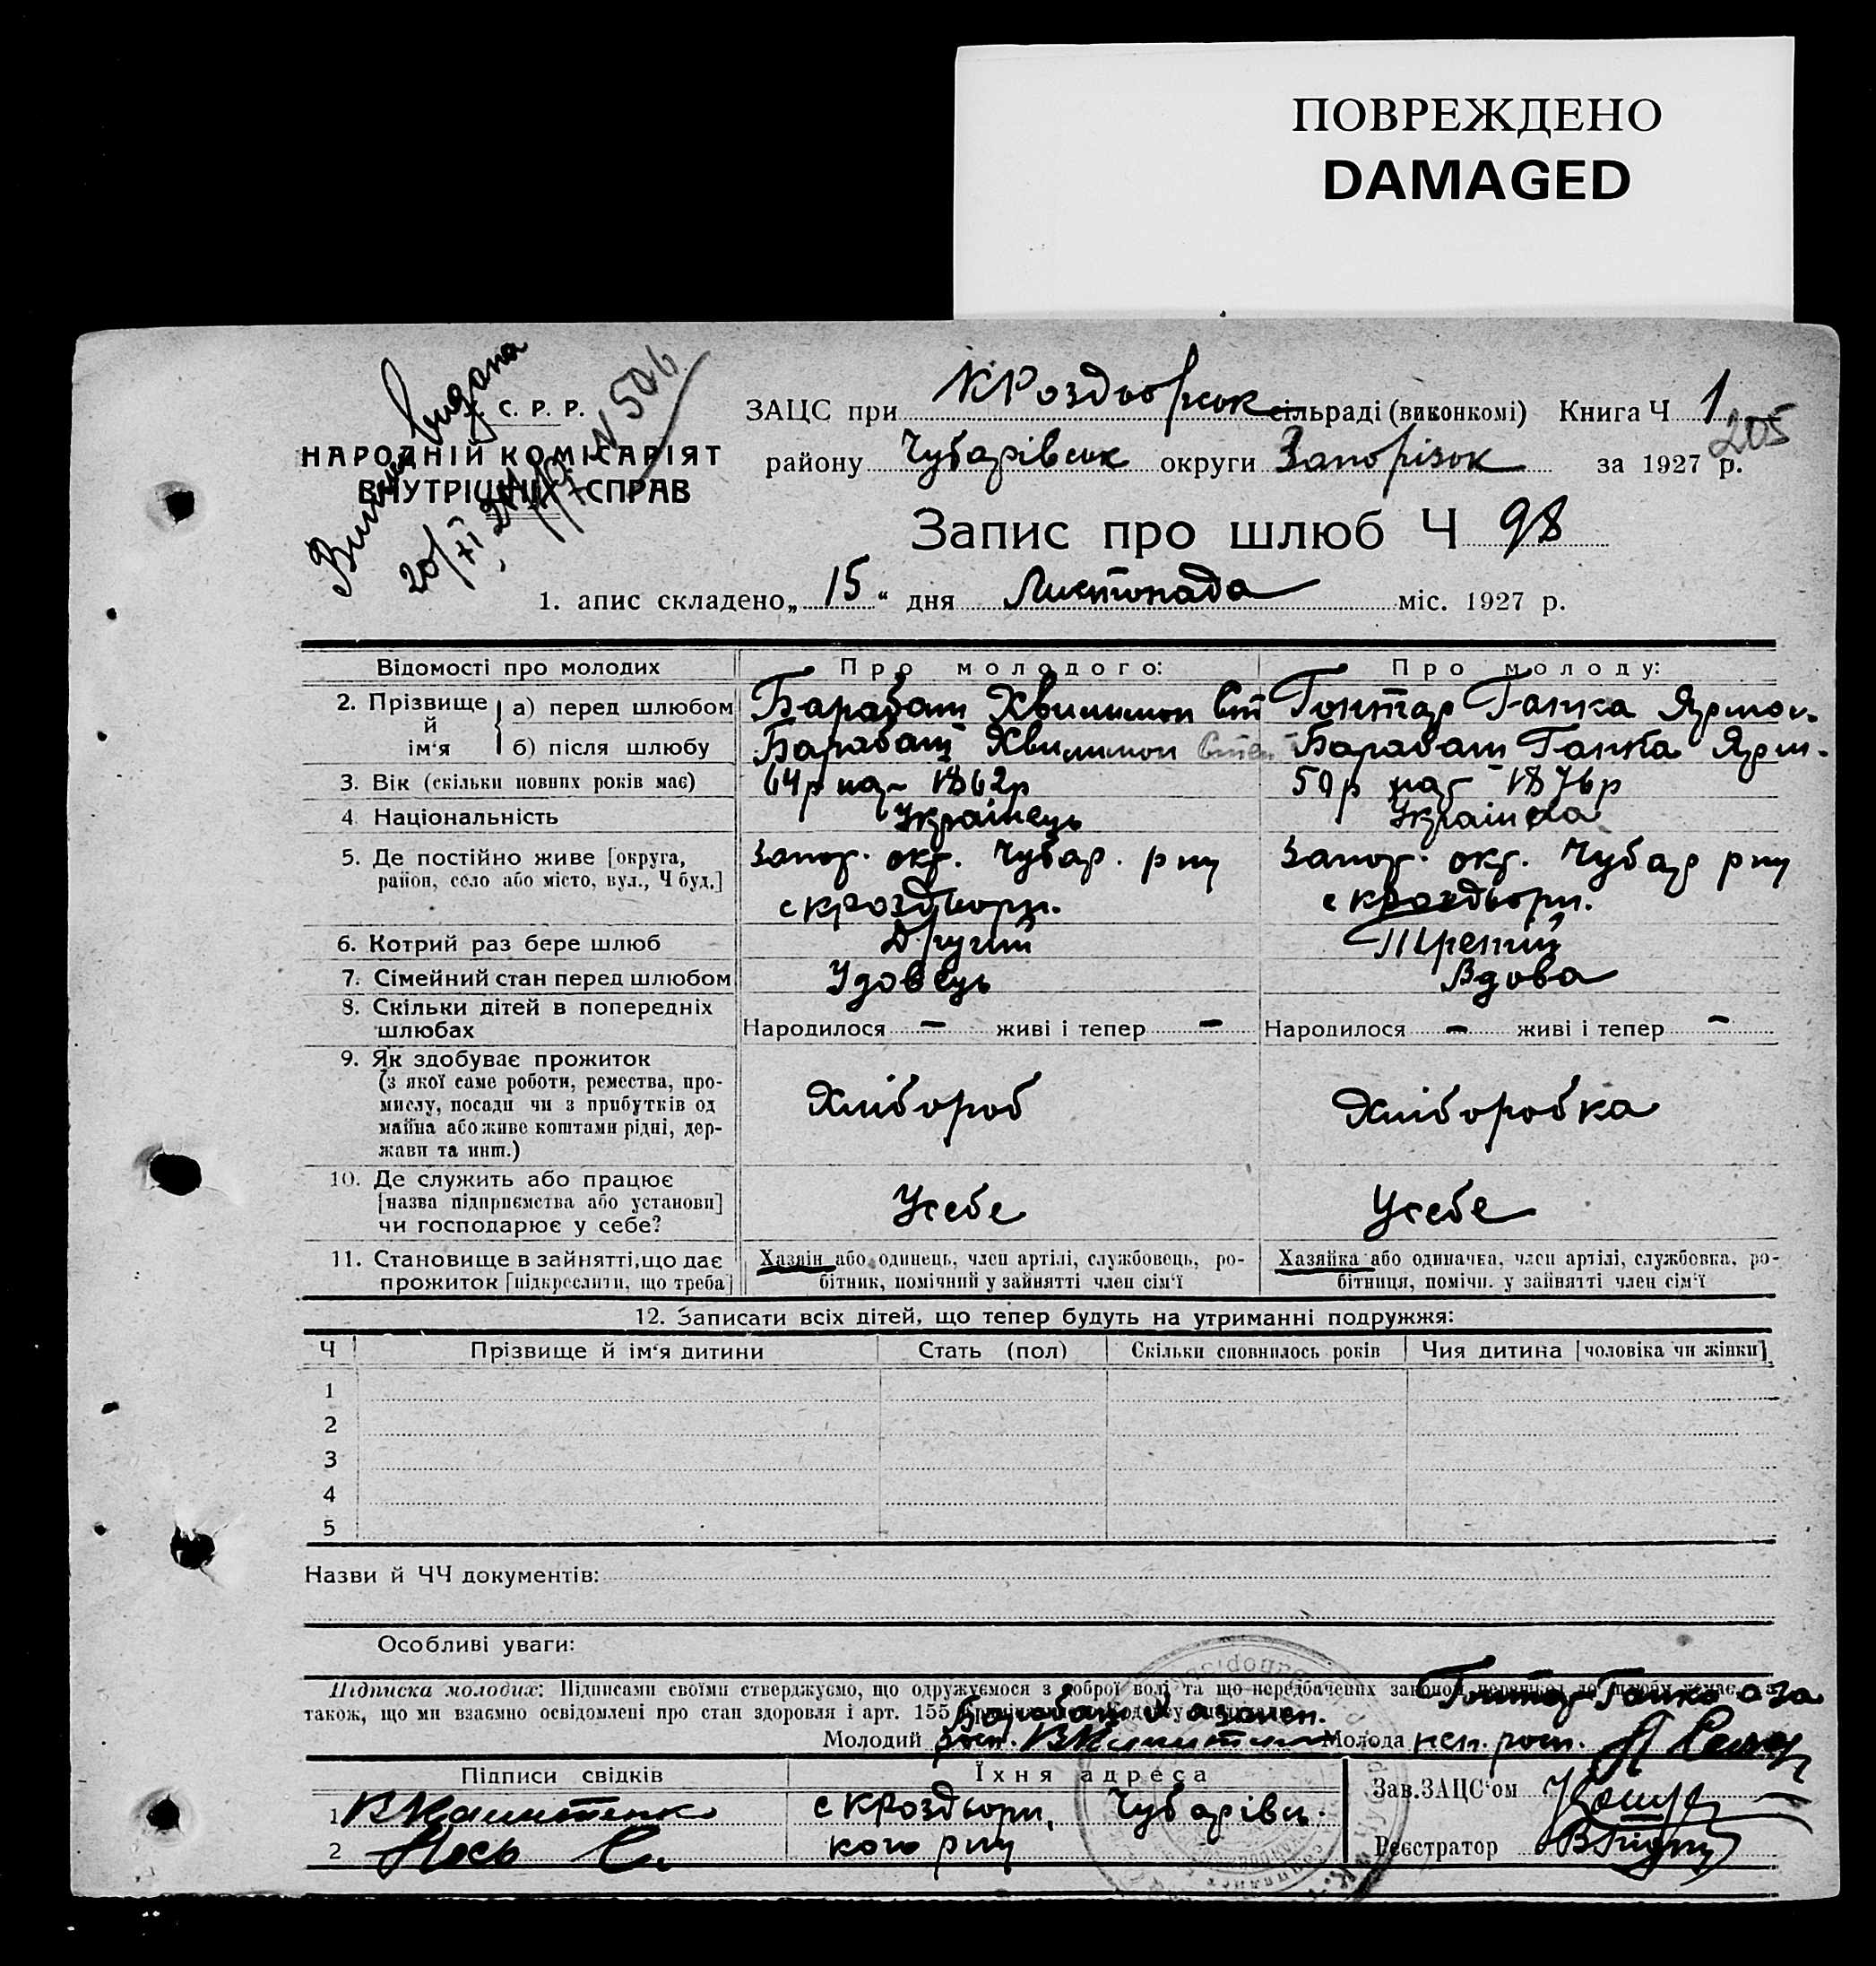 ПОВРЕЖДЕНО
DAMAGED
Виписка видана
20/XI 27 р. N 506
С. Р. Р.
НАРОДНІЙ КОМІСАРІЯТ
ВНУТРІШНІХ СПРАВ
ЗАЦС при КРоздьорськ сільраді (виконкомі) Книга Ч 1
205
району Чубарівськ округи Запорізьк за 1927 р.
Запис про шлюб Ч 98
1. апис складено „ 15 “ дня Листопада міс. 1927 р.
Відомості про молодих Про молодого: Про молоду:
2. Прізвище й ім'я а) перед шлюбом Барабаш Хвилимон Ст Гонтар Ганка Ярмол.
б) після шлюбу Барабаш Хвилимон Степ Барабаш Ганка Ярм.
3. Вік (скільки повних років має) 64р нар 1862р 50р нар 1876р
4. Національність Українець Українка
5. Де постійно живе [округа, район, село або місто, вул., Ч буд.] Запор. окр. Чубар. р ну Запор. окр. Чубар р ну
с кроздьори. с кроздьори.
6. Котрий раз бере шлюб Другий Третий
7. Сімейний стан перед шлюбом Удовець Вдова
8. Скільки дітей в попередніх шлюбах Народилося – живі і тепер – Народилося – живі і тепер –
9. Як здобуває прожиток
(з якої саме роботи, ремества, про-
мислу, посади чи з прибутків од
майна або живе коштами рідні, дер-
жави та инш.) Хлібороб Хліборобка
10. Де служить або працює
[назва підприємства або установи]
чи господарює у себе? Усебе Усебе
11. Становище в зайнятті, що дає
прожиток [підкреслити, що треба]
Хазяїн або одинець, член артілі, службовець, ро-
бітник, помічний у зайнятті член сім'ї
Хазяйка або одиначка, член артілі, службовка, ро-
бітниця, помічн. у зайнятті член сім'ї
12. Записати всіх дітей, що тепер будуть на утриманні подружжя:
Ч Прізвище й ім'я дитини Стать (пол) Скільки сповнилось років Чия дитина [чоловіка чи жінки]
1
2
3
4
5
Назви й ЧЧ документів:
Особливі уваги:
Підписка молодих: Підписами своїми стверджуємо, що одружуємося з доброї волі та що передбачених законом перешкод до шлюбу немає, а
також, що ми взаємно освідомлені про стан здоровля і арт. 155
Барабаш а за неп. Гонтар Ганка а за
Молодий росп. Молода неп. росп.
Підписи свідків Їхня адреса Зав. ЗАЦС'ом
1 с кроздьори, Чубарівсь-
2 кого р ну Реєстратор